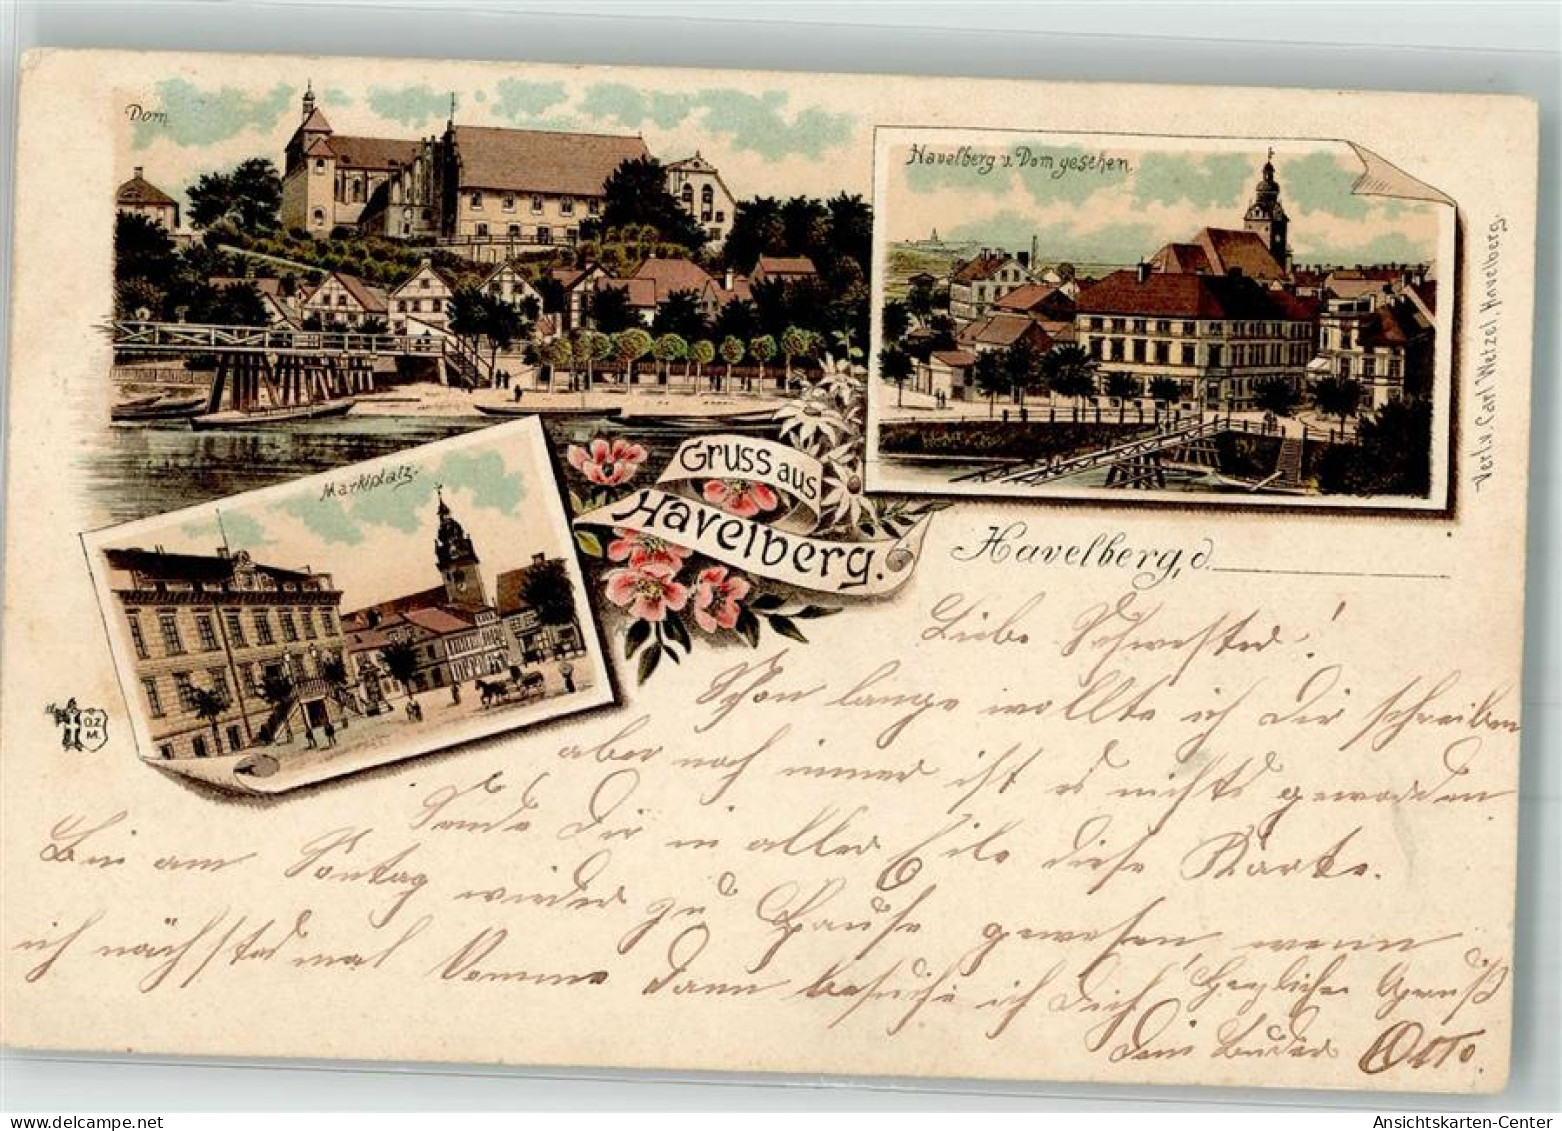 Dom.
Havelberg v. Dom gesehen.
Marktplatz.
Gruss aus
Havelberg.
Verl. v. Carl Wetzel, Havelberg.
O.Z.
M.
Havelberg, d.
Liebe Schwester!
Schon lange wollte ich Dir schreiben
aber noch immer ist es nichts geworden
Sende Dir in aller Eile diese Karte.
Bin am Sontag wieder zu Hause gewesen, wenn
ich nächstes mal komme dann besuche ich Dich
Herzlichen Gruß
Dein Bruder Otto.
Ansichtskarten-Center